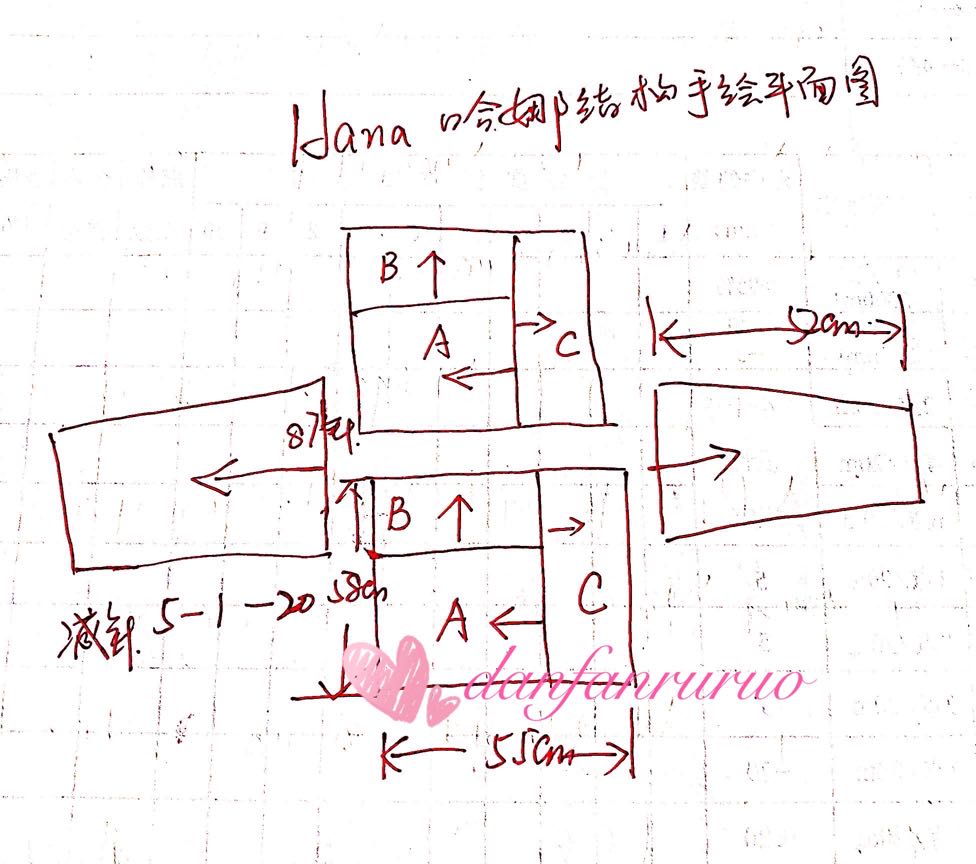 Hana 哈娜结构手绘平面图
B
A
C
52cm
87针.
B
58cm
A
C
减针. 5-1-20
danfanruruo
55cm